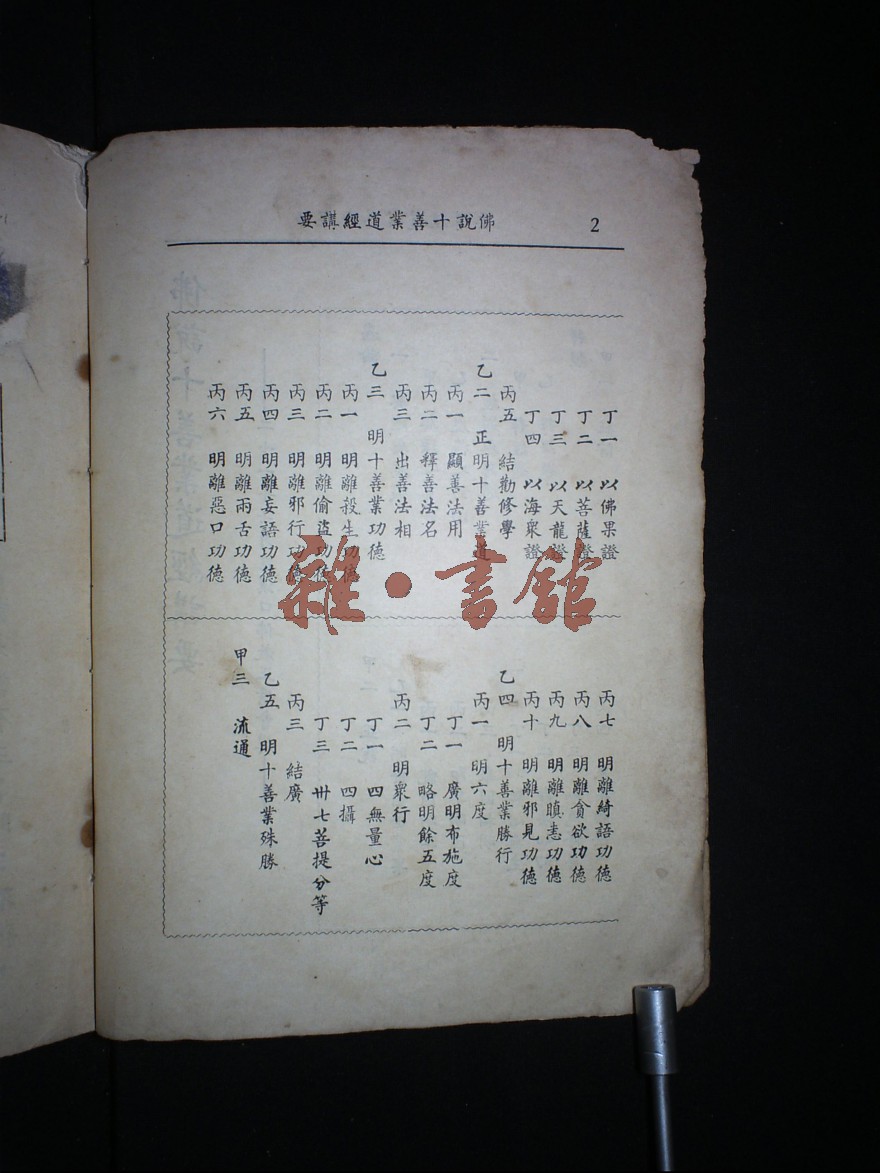 佛說十善業道經講要
2
丁一 以佛果證
丁二 以菩薩證
丁三 以天龍證
丁四 以海衆證
丙五 結勸修學
乙二 正明十善業道
丙一 顯善法用
丙二 釋善法名
丙三 出善法相
乙三 明十善業功德
丙一 明離殺生功德
丙二 明離偷盜功德
丙三 明離邪行功德
丙四 明離妄語功德
丙五 明離兩舌功德
丙六 明離惡口功德
丙七 明離綺語功德
丙八 明離貪欲功德
丙九 明離瞋恚功德
丙十 明離邪見功德
乙四 明十善業勝行
丙一 明六度
丁一 廣明布施度
丁二 略明餘五度
丙二 明衆行
丁一 四無量心
丁二 四攝
丁三 卅七菩提分等
丙三 結廣
乙五 明十善業殊勝
甲三 流通
雜·書館
佛說十善業道經講要